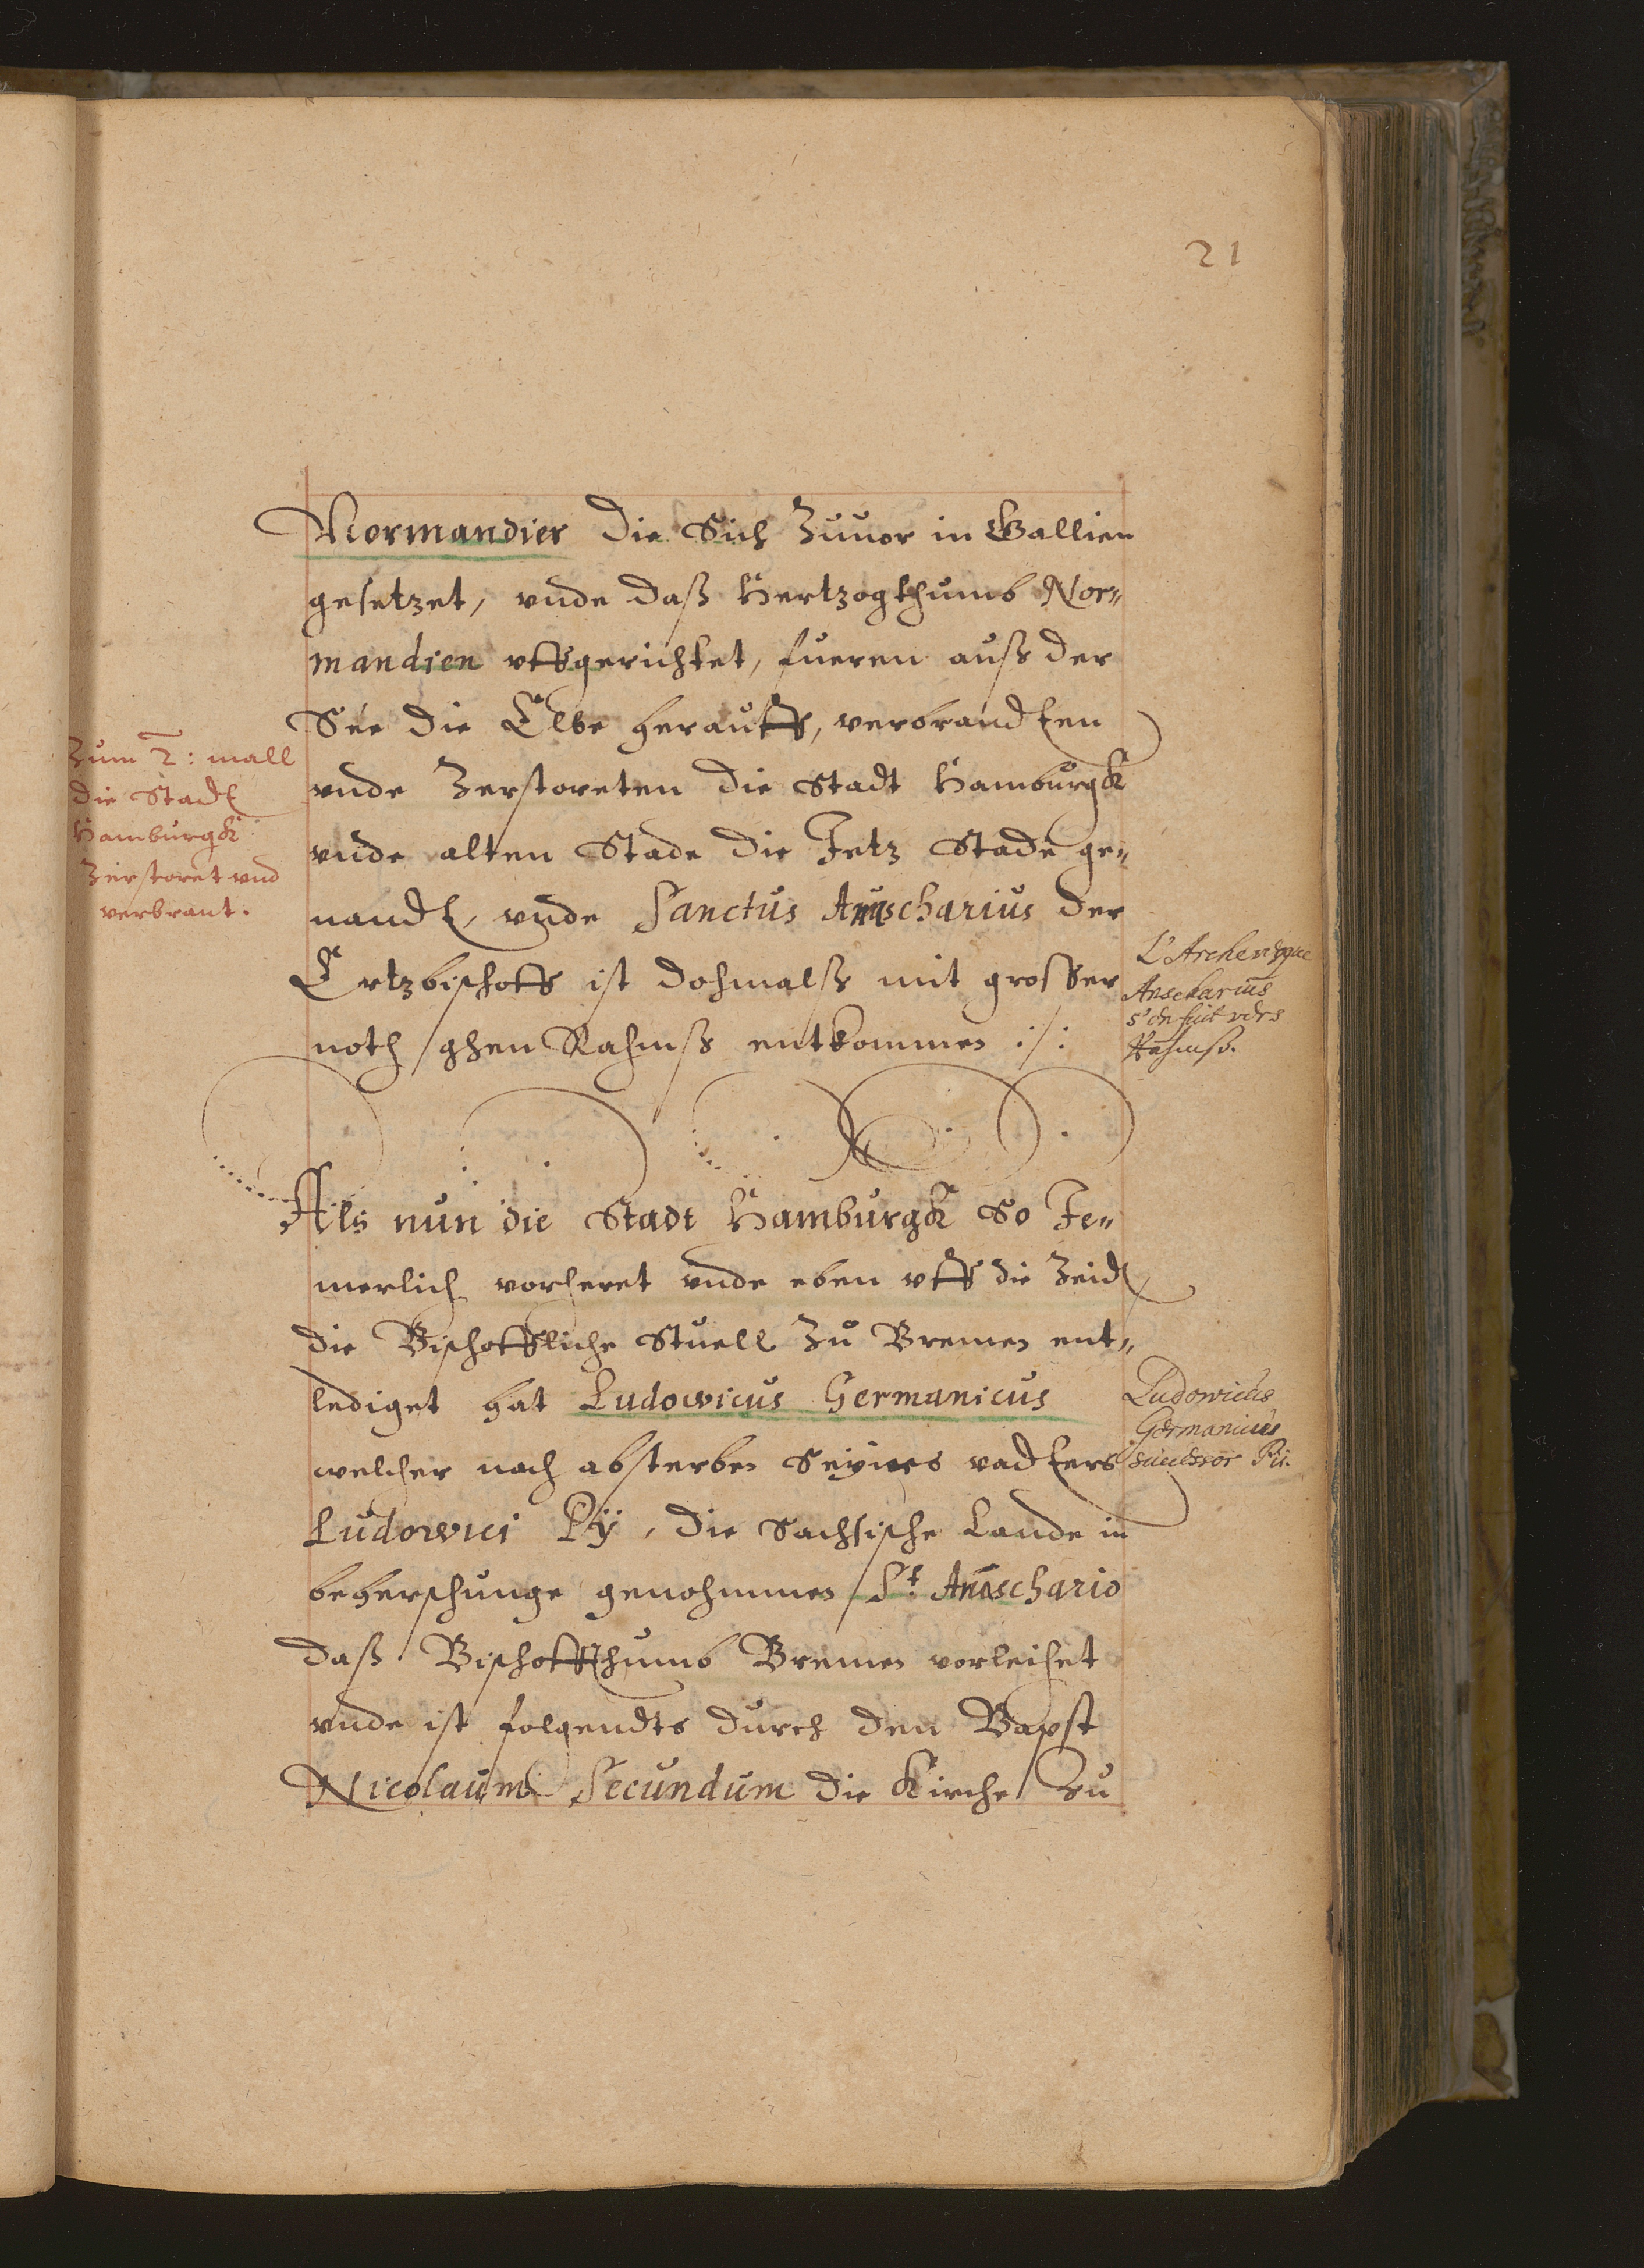 21
Normandier die Sich Zuuor in Gallien
gesetzet, vnde daß Hertzogthumb Nor„
mandien vffgerichtet, fueren auß der
See die Elbe herauff, verbrandten
vnde Zerstoreten die Stadt Hamburgk
vnde alten Stade die Jetz Stade ge„
nandt, vnde Sanctus Anscharius der
Ertzbischoff ist dohmalß mit grosser
noth ghen Rahmß entkommen :/:
Zum 2: mall
die Stadt
Hamburgk
Zerstoret vnd
verbrant.
L'Archevesque
Anscharius
s'en fuit vers
Rahmß.
Als nun die Stadt Hamburgk So Je„
merlich vorheret vnde eben vff die Zeidt
die Bischoffliche Stuell Zu Bremen ent„
lediget hat Ludowicus Germanicus
welcher nach absterben Seynes vadters
Ludowici Pij, die Sachsische Lande in
beherschunge genohmmen St. Anschario
daß Bischoffthumb Bremen vorleihet
vnde ist folgendts durch den Bapst
Nicolaum Secundum die Kirche zu
Ludovicus
Germanicus
successor Pii.